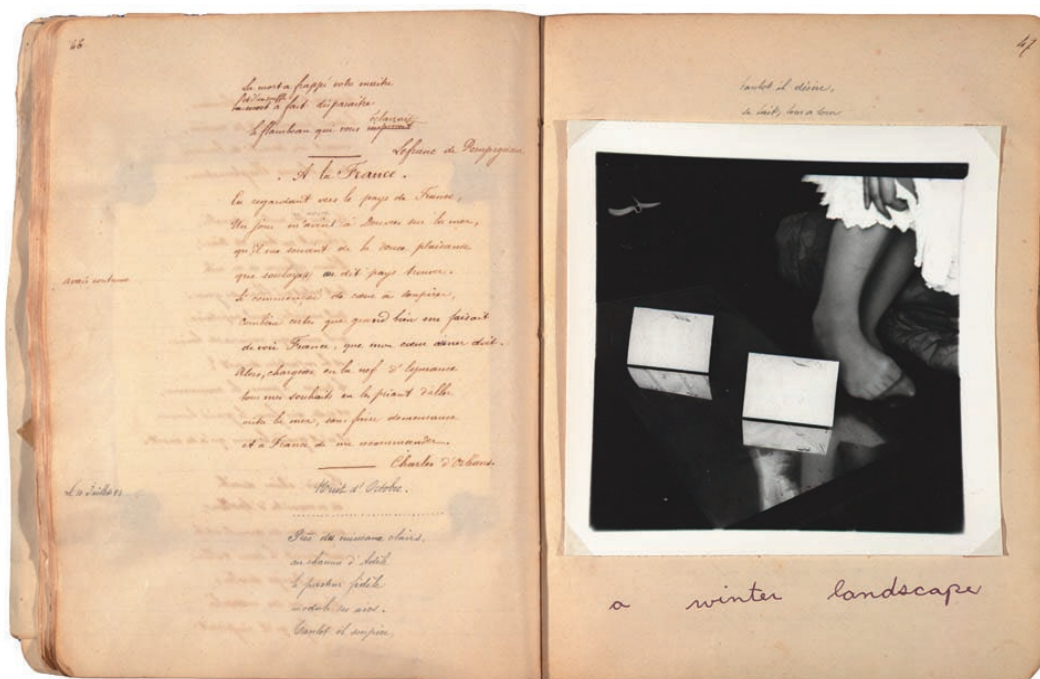 46
La mort a frappé votre maître
a fait disparaître
le flambeau qui vous
Lefranc de Pompignan
A la France.
En regardant vers le pays de France,
Un jour m'avint à Douvres sur la mer,
qu'il me souvint de la douce plaisance
que soulayes au dit pays trouver.
avais coutume
de cœur à soupirer,
combien certes que grand bien me faisait
de voir France, que mon cœur aimer doit.
Alors, chargeai en la nef d'espérance
tous mes souhaits en les priant d'aller
outre la mer, sans faire demeurance
et à France de me recommander.
Charles d'Orléans.
Nuit d'Octobre.
Près des ruisseaux clairs,
au chaume d'Adèle
le pasteur fidèle
module ses airs.
Tantôt il soupire
47
tantôt il désire,
se tait, tour à tour
a winter landscape